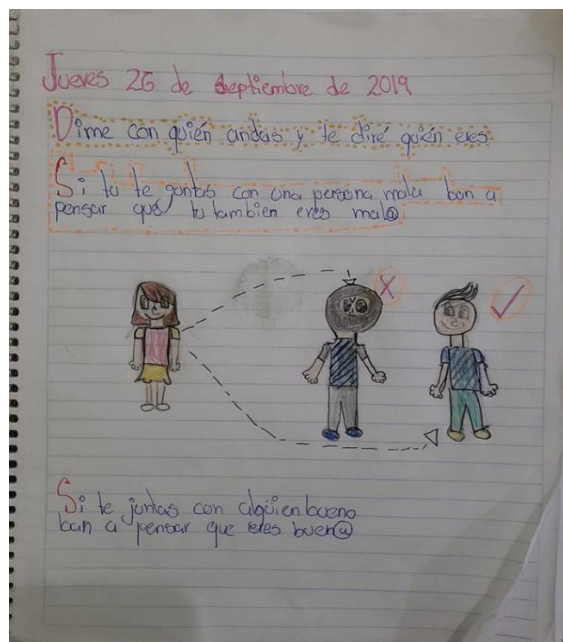 Jueves 26 de septiembre de 2019
Dime con quién andas y te diré quién eres
Si tu te juntas con una persona mala ban a
pensar qué tu tambien eres mal@
Si te juntas con algúien bueno
ban a pensar que eres buen@